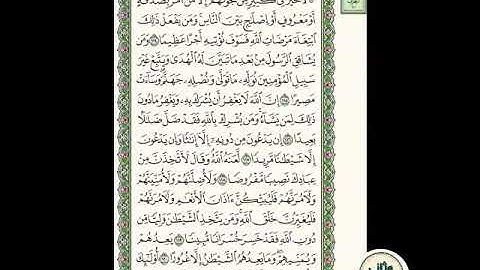 لَّا خَيْرَ فِي كَثِيرٍ مِّن نَّجْوَىٰهُمْ إِلَّا مَنْ أَمَرَ بِصَدَقَةٍ
أَوْ مَعْرُوفٍ أَوْ إِصْلَٰحٍۭ بَيْنَ النَّاسِ وَمَن يَفْعَلْ ذَٰلِكَ
ابْتِغَآءَ مَرْضَاتِ اللَّهِ فَسَوْفَ نُؤْتِيهِ أَجْرًا عَظِيمًا ١١٤ وَمَن
يُشَاقِقِ الرَّسُولَ مِنۢ بَعْدِ مَا تَبَيَّنَ لَهُ الْهُدَىٰ وَيَتَّبِعْ غَيْرَ
سَبِيلِ الْمُؤْمِنِينَ نُوَلِّهِۦ مَا تَوَلَّىٰ وَنُصْلِهِۦ جَهَنَّمَ وَسَآءَتْ
مَصِيرًا ١١٥ إِنَّ اللَّهَ لَا يَغْفِرُ أَن يُشْرَكَ بِهِۦ وَيَغْفِرُ مَا دُونَ
ذَٰلِكَ لِمَن يَشَآءُ وَمَن يُشْرِكْ بِاللَّهِ فَقَدْ ضَلَّ ضَلَٰلًۢا
بَعِيدًا ١١٦ إِن يَدْعُونَ مِن دُونِهِۦٓ إِلَّآ إِنَٰثًا وَإِن يَدْعُونَ
إِلَّا شَيْطَٰنًا مَّرِيدًا ١١٧ لَّعَنَهُ اللَّهُ وَقَالَ لَأَتَّخِذَنَّ مِنْ
عِبَادِكَ نَصِيبًا مَّفْرُوضًا ١١٨ وَلَأُضِلَّنَّهُمْ وَلَأُمَنِّيَنَّهُمْ
وَلَءَامُرَنَّهُمْ فَلَيُبَتِّكُنَّ ءَاذَانَ الْأَنْعَٰمِ وَلَءَامُرَنَّهُمْ
فَلَيُغَيِّرُنَّ خَلْقَ اللَّهِ وَمَن يَتَّخِذِ الشَّيْطَٰنَ وَلِيًّا مِّن
دُونِ اللَّهِ فَقَدْ خَسِرَ خُسْرَانًا مُّبِينًا ١١٩ يَعِدُهُمْ
وَيُمَنِّيهِمْ وَمَا يَعِدُهُمُ الشَّيْطَٰنُ إِلَّا غُرُورًا ١٢٠ أُو۟لَٰٓئِكَ